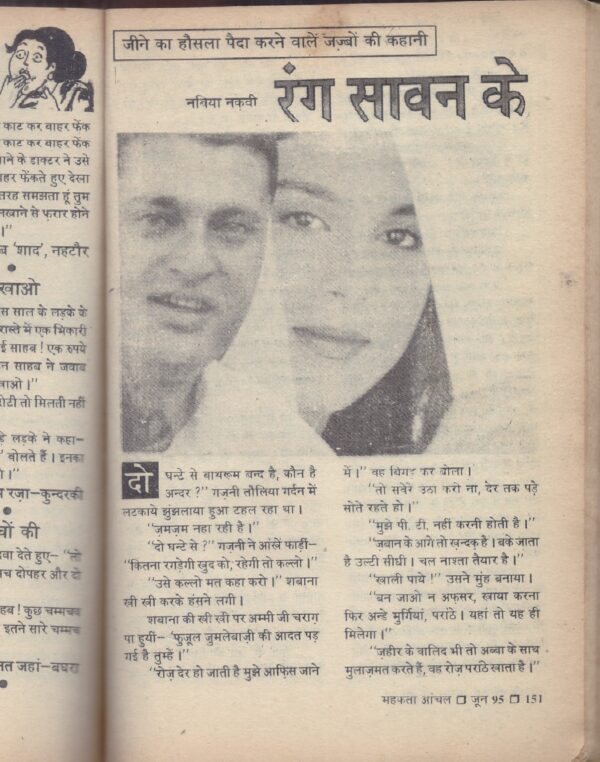 काट कर बाहर फेंक
काट कर बाहर फेंक
के डाक्टर ने उसे
फेंकते हुए देखा
तरह समझता हूं तुम
से फ़रार होने
।”
‘शाद’, नहटौर
साल के लड़के के
रास्ते में एक भिकारी
साहब ! एक रुपये
साहब ने जवाब
।”
तो मिलती नहीं
लड़के ने कहा–
बोलते हैं । इनका
।”
रज़ा–कुन्दरकी
की
देते हुए– “तो
दोपहर और दो
! कुछ चम्मचब
इतने सारे चम्मच
जहां–बघरा
जीने का हौसला पैदा करने वालें जज़्बों की कहानी
नबिया नक़वी
रंग सावन के
दो घन्टे से बाथरूम बन्द है, कौन है
अन्दर ?” गज़नी तौलिया गर्दन में
लटकाये झुंझलाया हुआ टहल रहा था ।
“ज़मज़म नहा रही है ।”
“दो घन्टे से ?” गज़नी ने आंखें फाड़ीं–
“कितना रगड़ेगी खुद को, रहेगी तो कल्लो ।”
“उसे कल्लो मत कहा करो ।” शबाना
खी खी करके हंसने लगी ।
शबाना की खी खी पर अम्मी जी चराग़
पा हुयीं– “फुज़ूल जुमलेबाज़ी की आदत पड़
गई है तुम्हें ।”
“रोज़ देर हो जाती है मुझे आफ़िस जाने
में ।” वह बिगड़ कर बोला ।
“तो सवेरे उठा करो ना, देर तक पड़े
सोते रहते हो ।”
“मुझे पी. टी. नहीं करनी होती है ।”
“जबान के आगे तो खन्दक़ है । बके जाता
है उल्टी सीधी । चल नाश्ता तैयार है ।”
“ख़ाली पाये !” उसने मुंह बनाया ।
“बन जाओ न अफ़सर, खाया करना
फिर अन्डे मुर्गियां, परांठे । यहां तो यह ही
मिलेगा ।”
“ज़हीर के वालिद भी तो अब्बा के साथ
मुलाज़मत करते हैं, वह रोज़ परांठे खाता है ।”
महकता आंचल □ जून 95 □ 151